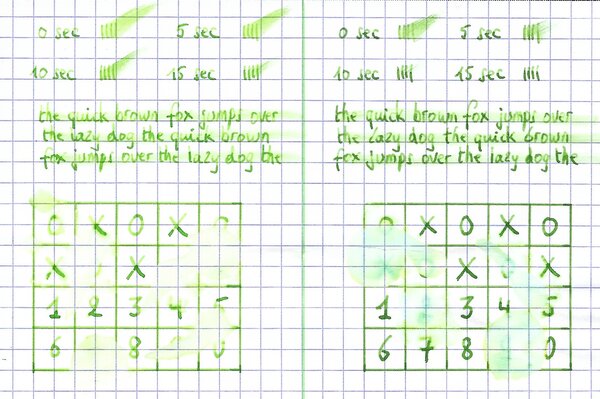 0 sec 5 sec
10 sec 15 sec
the quick brown fox jumps over
the lazy dog the quick brown
fox jumps over the lazy dog the
0 X 0 X
X X
1 2 3 4 5
6 8 0
0 sec 5 sec
10 sec 15 sec
the quick brown fox jumps over
the lazy dog the quick brown
fox jumps over the lazy dog the
X 0 X 0
X X
1 3 4 5
6 7 8 0